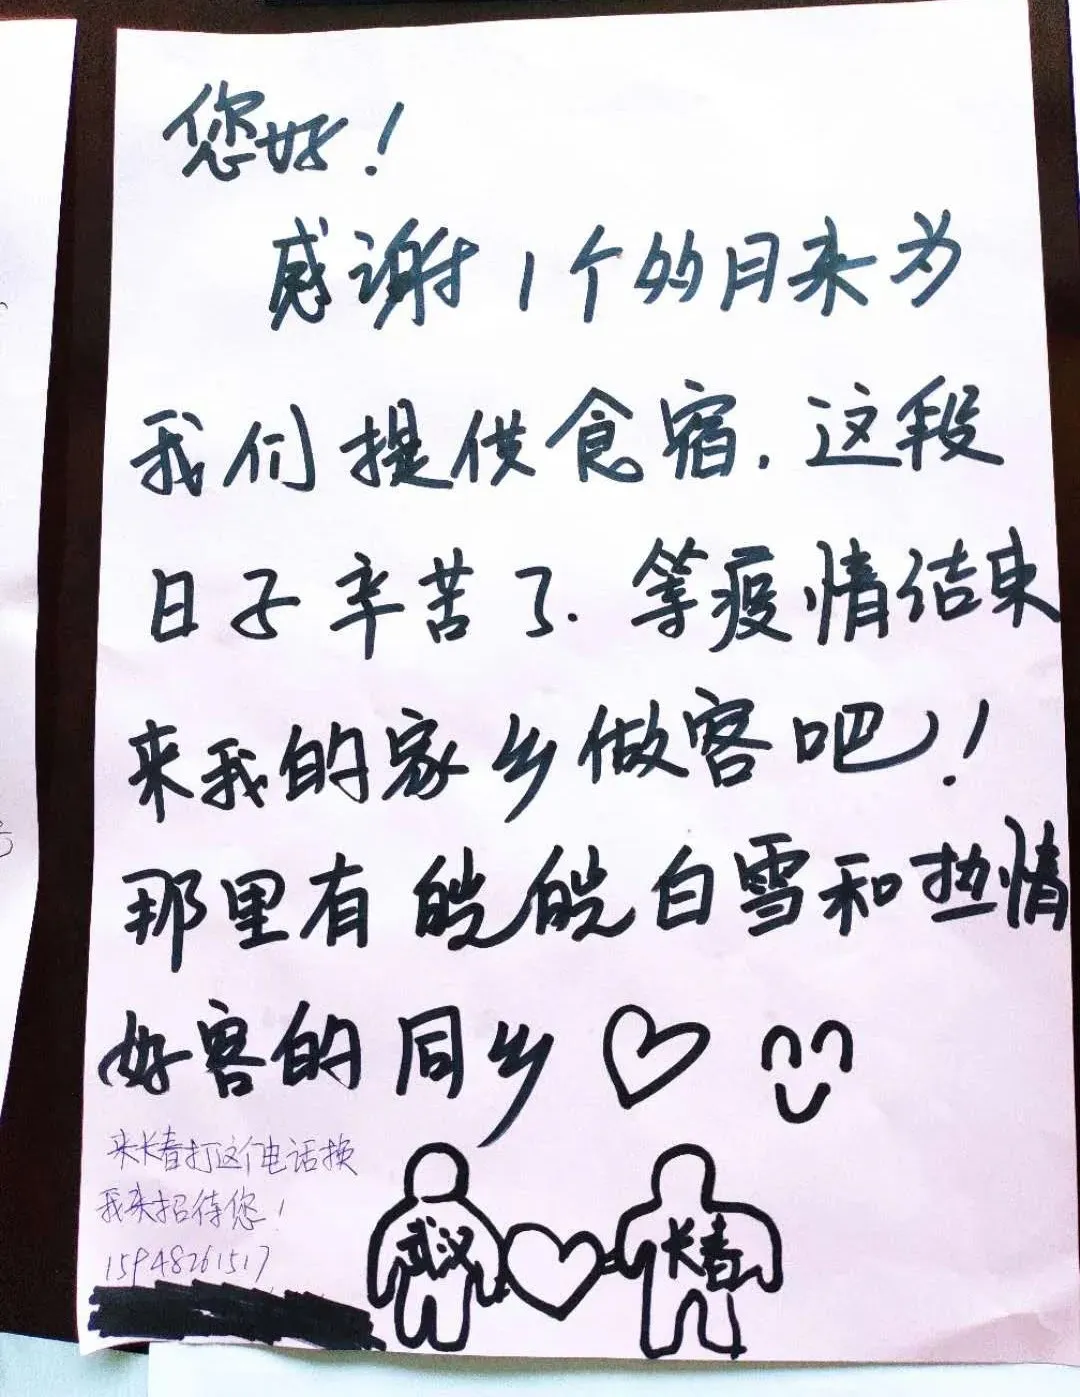 您好！
感谢1个多月来为
我们提供食宿，这段
日子辛苦了．等疫情结束
来我的家乡做客吧！
那里有皑皑白雪和热情
好客的同乡
来长春打这个电话换
我来招待您！
15948261517
武汉
长春